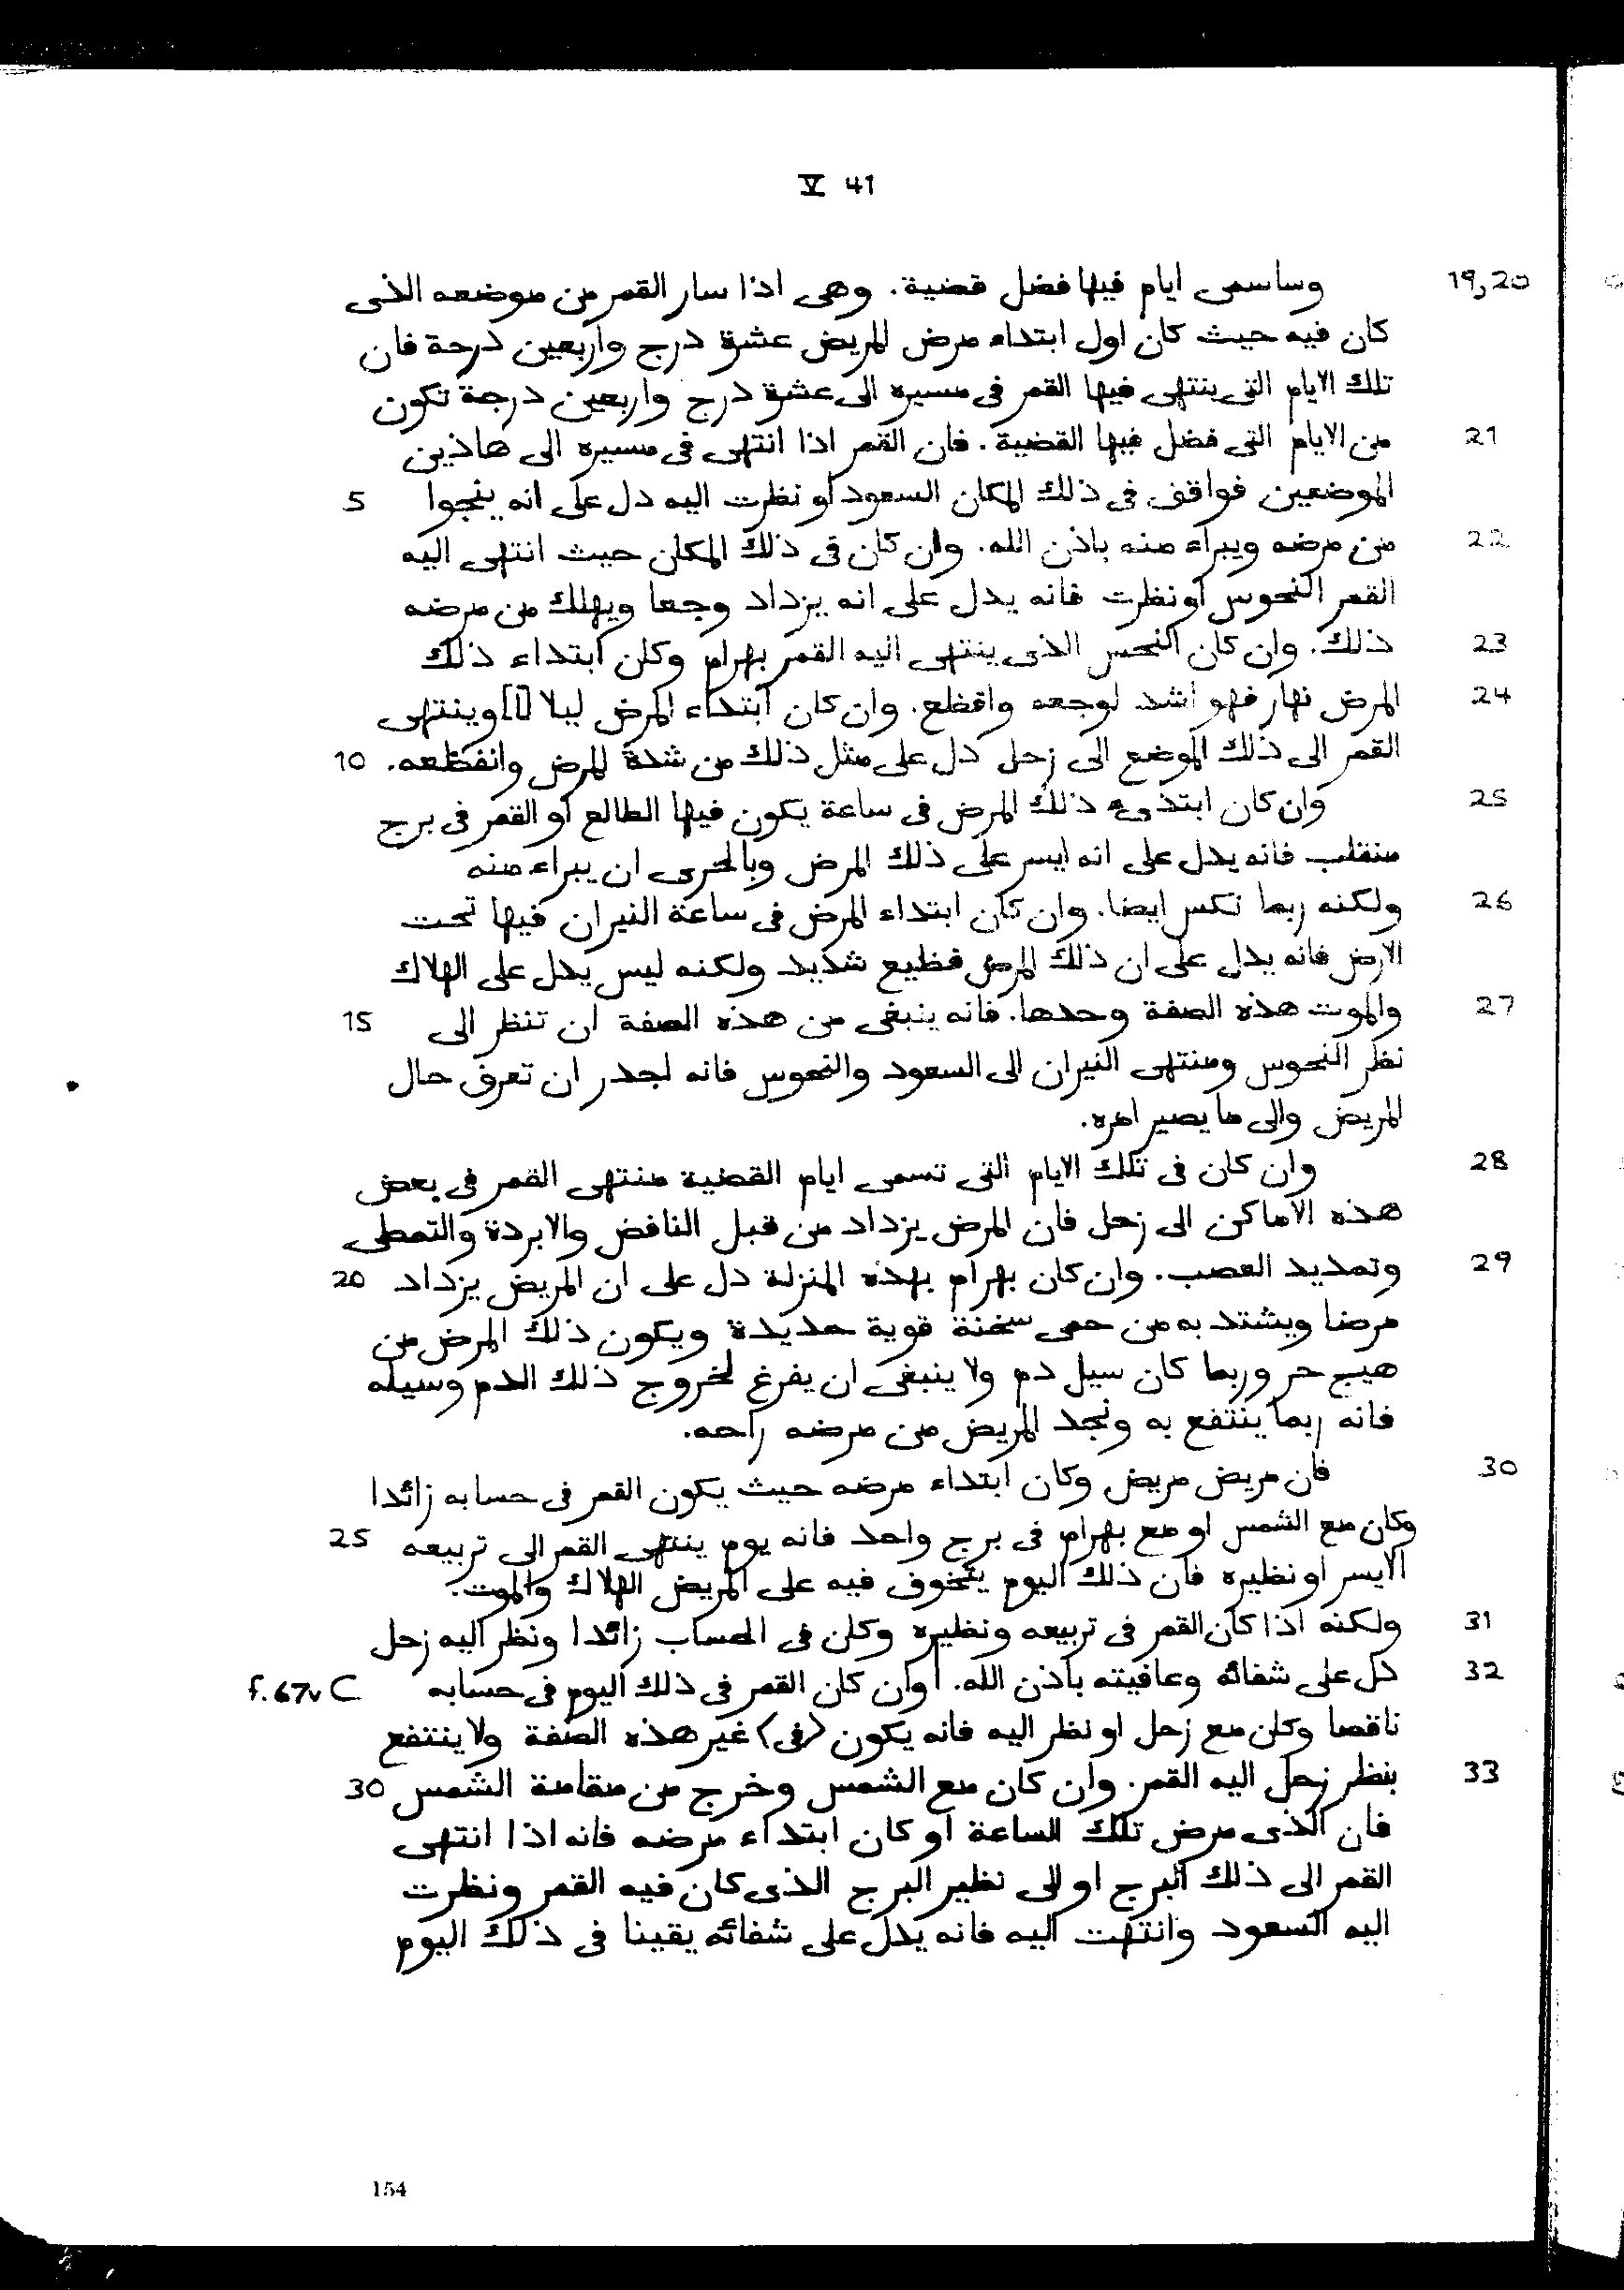 V 41
19,20 وساسمى ايام فيها فضل قضية. وهى اذا سار القمر من موضعه الذى
كان فيه حيث كان اول ابتداء مرض المريض عشرة درج واربعين درجة فان
تلك الايام التى ينتهى فيها القمر فى مسيره الى عشرة درج واربعين درجة تكون
21 من الايام التى فضل فيها القضية. فان القمر اذا انتهى فى مسيره الى هاذين
الموضعين فواقف فى ذلك المكان السعود او نظرت اليه دل على انه ينجوا 5
22 من مرضه ويبراء منه باذن الله. وان كان فى ذلك المكان حيث انتهى اليه
القمر النحوس او نظرت فانه يدل على انه يزداد وجعا ويهلك من مرضه
23 ذلك. وان كان النحس الذى ينتهى اليه القمر بهرام وكان ابتداء ذلك
24 المرض نهار فهو اشد لوجعه وافظع. وان كان ابتداء المرض ليلا [ا] وينتهى
القمر الى ذلك الموضع الى زحل دل على مثل ذلك من شدة المرض وانفظعه. 10
25 وان كان ابتدىء ذلك المرض فى ساعة يكون فيها الطالع او القمر فى برج
منقلب فانه يدل على انه ايسر على ذلك المرض وبالحرى ان يبراء منه
26 ولكنه ربما نكس ايضا. وان كان ابتداء المرض فى ساعة النيران فيها تحت
الارض فانه يدل على ان ذلك المرض فظيع شديد ولكنه ليس يدل على الهلاك
27 والموت هذه الصفة وحدها. فانه ينبغى من هذه الصفة ان تنظر الى 15
نظر النحوس ومنتهى النيران الى السعود والنحوس فانه اجدر ان تعرف حال
المريض والى ما يصير امره.
28 وان كان فى تلك الايام التى تسمى ايام القضية منتهى القمر فى بعض
هذه الاماكن الى زحل فان المرض يزداد من قبل النافض والابردة والتمطى
29 وتمديد العصب. وان كان بهرام بهذه المنزلة دل على ان المريض يزداد 20
مرضا ويشتد به من حمى سخنة قوية حديدة ويكون ذلك المرض من
هيج حر وربما كان سيل دم ولا ينبغى ان يفرغ لخروج ذلك الدم وسيله
فانه ربما ينتفع به ونجد المريض من مرضه راحه.
30 فان مريض مريض وكان ابتداء مرضه حيث يكون القمر فى حسابه زائدا
وكان مع الشمس او مع بهرام فى برج واحد فانه يوم ينتهى القمر الى تربيعه 25
الايسر او نظيره فان ذلك اليوم يتخوف فيه على المريض الهلاك والموت.
31 ولكنه اذا كان القمر فى تربيعه ونظيره وكان فى الحساب زائدا ونظر اليه زحل
32 دل على شفائه وعافيته باذن الله. | وان كان القمر فى ذلك اليوم فى حسابه f. 67v C
ناقصا وكان مع زحل او نظر اليه فانه يكون ⟨فى⟩ غير هذه الصفة ولا ينتفع
33 بنظر زحل اليه القمر. وان كان مع الشمس وخرج من مقامة الشمس 30
فان الذى مرض تلك الساعة او كان ابتداء مرضه فانه اذا انتهى
القمر الى ذلك البرج او الى نظير البرج الذى كان فيه القمر ونظرت
اليه السعود وانتهت اليه فانه يدل على شفائه يقينا فى ذلك اليوم
154